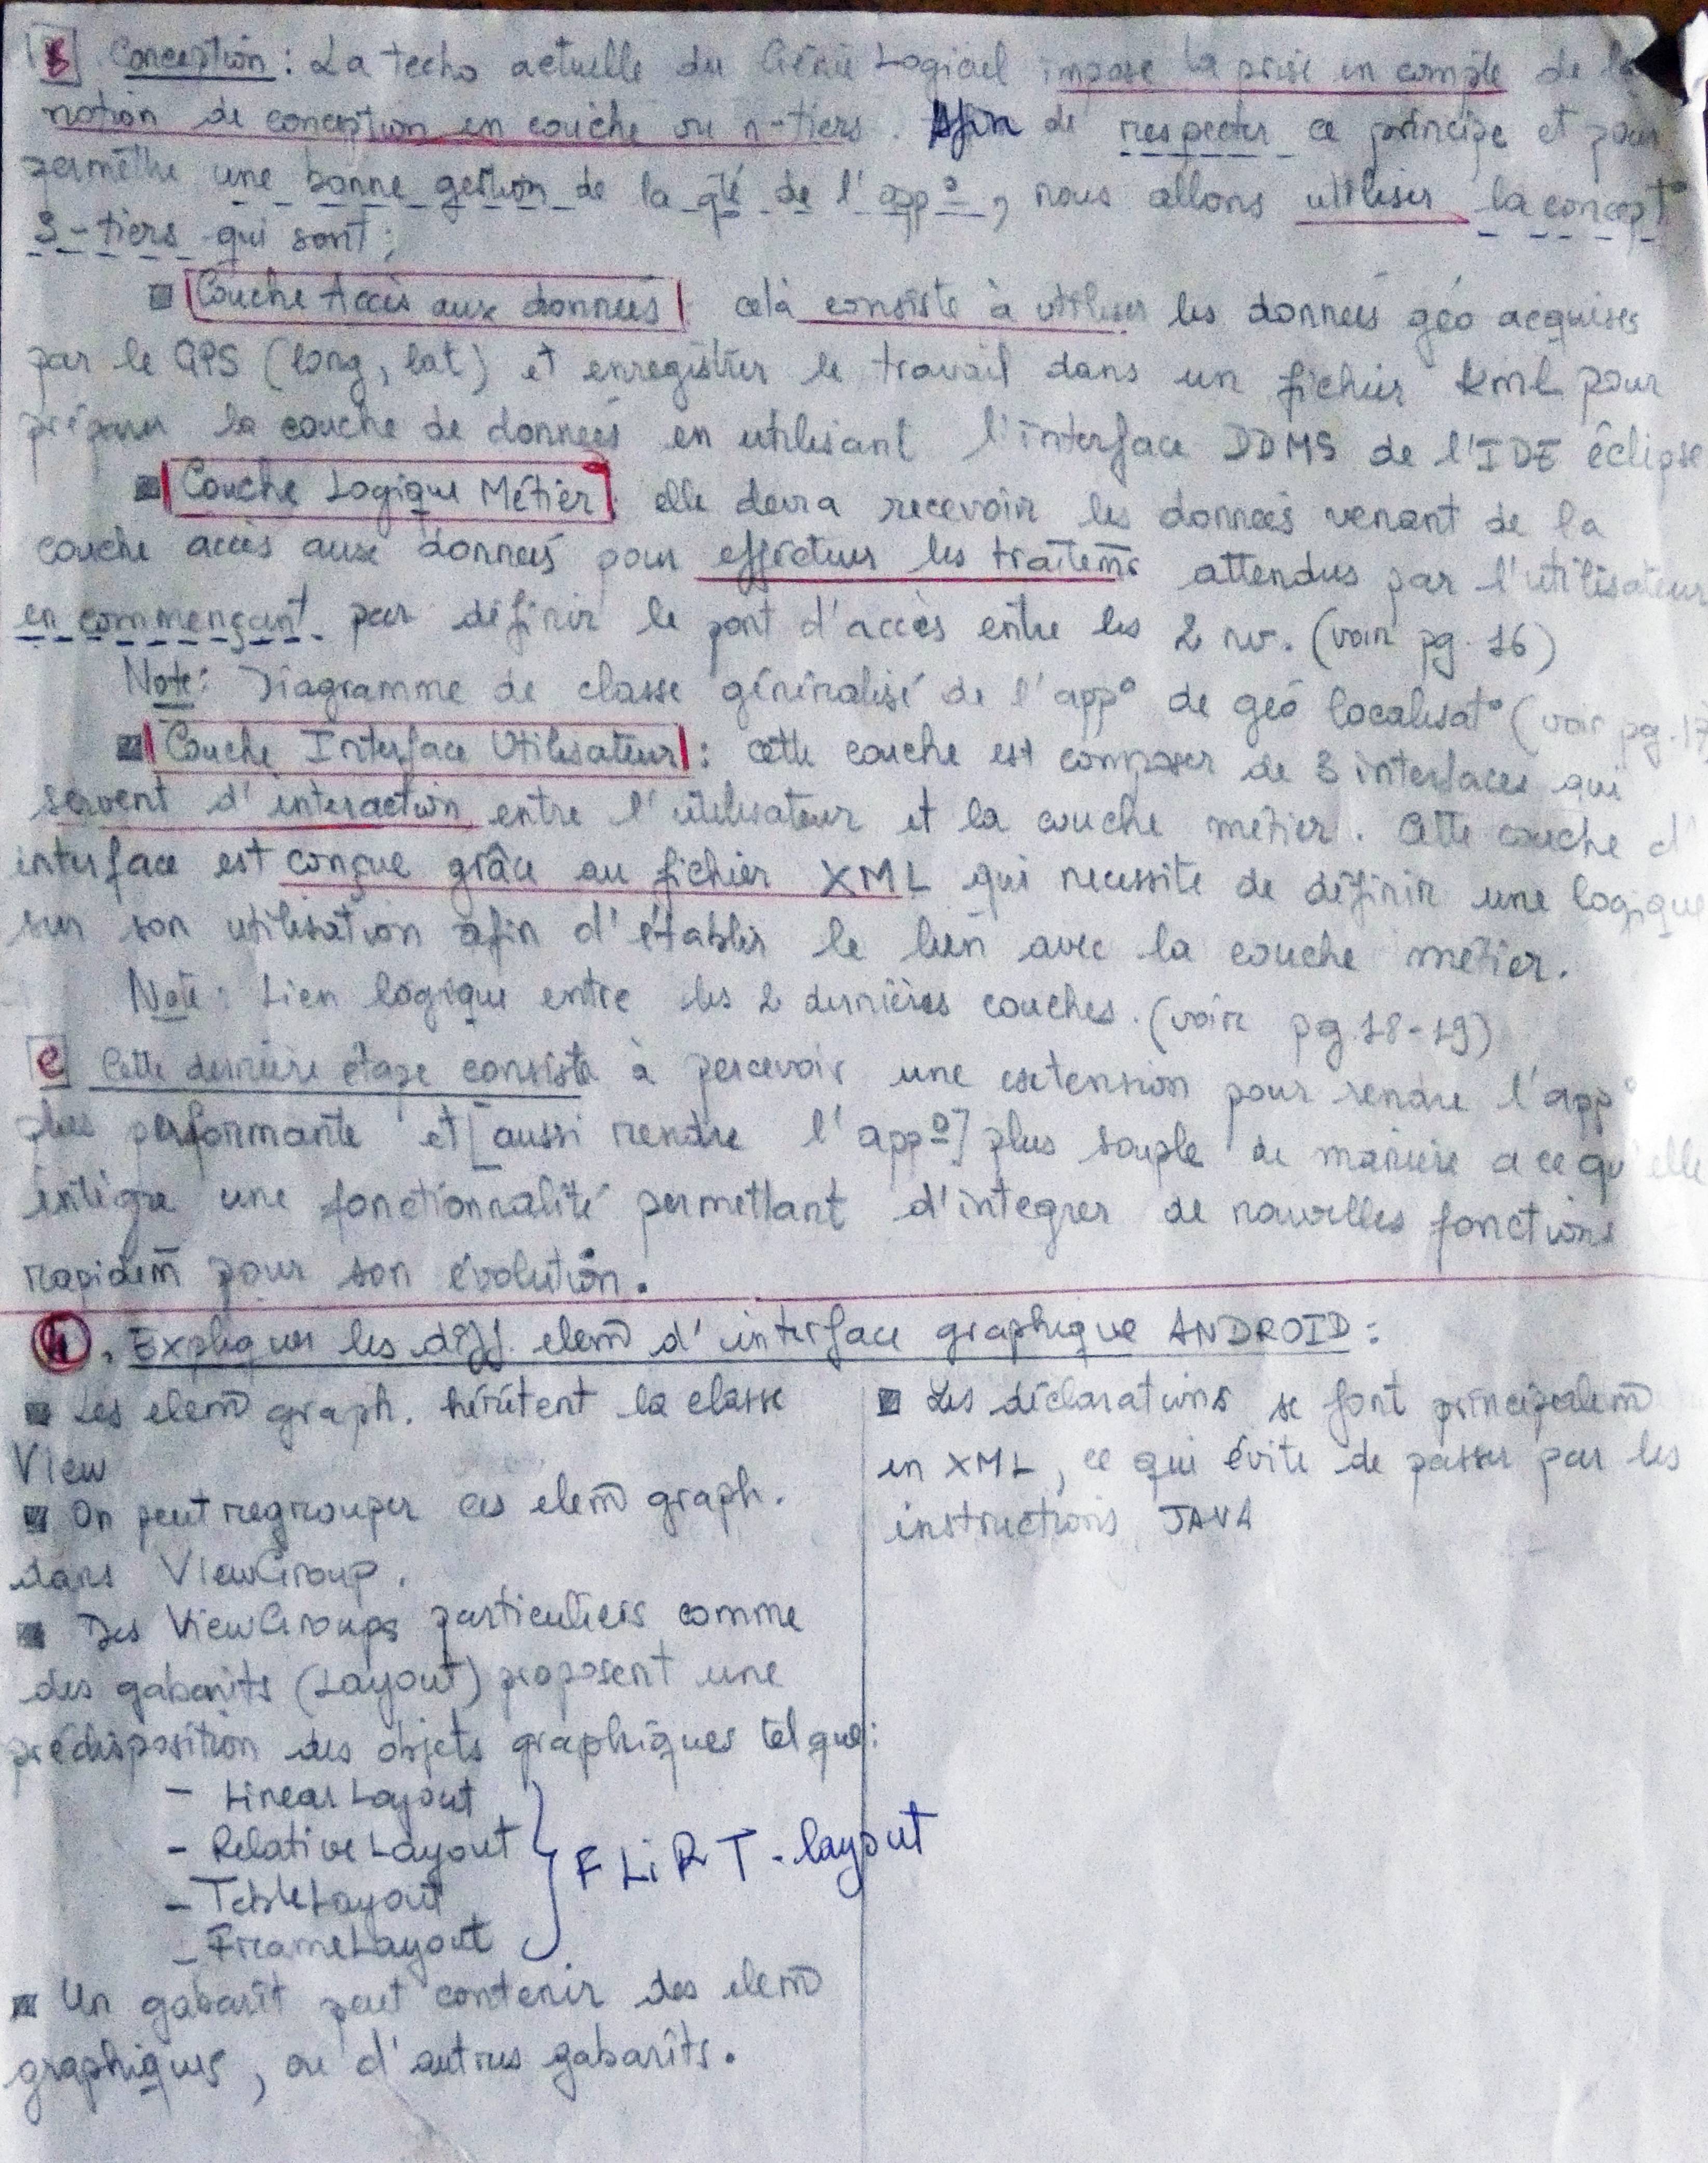 B. Conception : La techo actuelle du Génie Logiciel impose la prise en compte de la
notion de conception en couche ou n-tiers. Afin de respecter ce principe et pour
permettre une bonne gestion de la qté de l'app°, nous allons utiliser la concept°
3-tiers qui sont :
Couche Accès aux données : celà consiste à utiliser les données géo acquises
par le GPS (long, lat) et enregistrer le travail dans un fichier Kml pour
préparer la couche de données en utilisant l'interface DDMS de l'IDE éclipse
Couche Logique Métier : elle devra recevoir les données venant de la
couche accès aux données pour effectuer les traitem̄s attendus par l'utilisateur
en commençant par définir le pont d'accès entre les 2 nv. (voir pg. 16)
Note : Diagramme de classe généralisé de l'app° de géo localisat° (voir pg. 17
Couche Interface Utilisateur : cette couche est composer de 3 interfaces qui
servent d'interaction entre l'utilisateur et la couche métier. Cette couche d'
interface est conçue grâce au fichier XML qui necessite de définir une logique
sur son utilisation afin d'établir le lien avec la couche métier.
Note : Lien logique entre les 2 dernières couches. (voir pg. 18-19)
C Cette dernière étape consiste à percevoir une extension pour rendre l'app°
plus performante et [aussi rendre l'app°] plus souple de manière a ce qu'elle
intègre une fonctionnalité permettant d'integrer de nouvelles fonctions
rapidem̄ pour son évolution.
4. Expliquer les diff. elem̄ d'interface graphique ANDROID :
Les elem̄ graph. héritent la classe
View
On peut regrouper ces elem̄ graph.
dans ViewGroup.
Des ViewGroups particuliers comme
des gabarits (Layout) proposent une
prédisposition des objets graphiques tel que :
- LinearLayout
- RelativeLayout
- TableLayout
- FrameLayout
FLiRT-layout
Un gabarit peut contenir des elem̄
graphiques, ou d'autres gabarits.
Les déclarations se font principalem̄
en XML, ce qui évite de passer par les
instructions JAVA